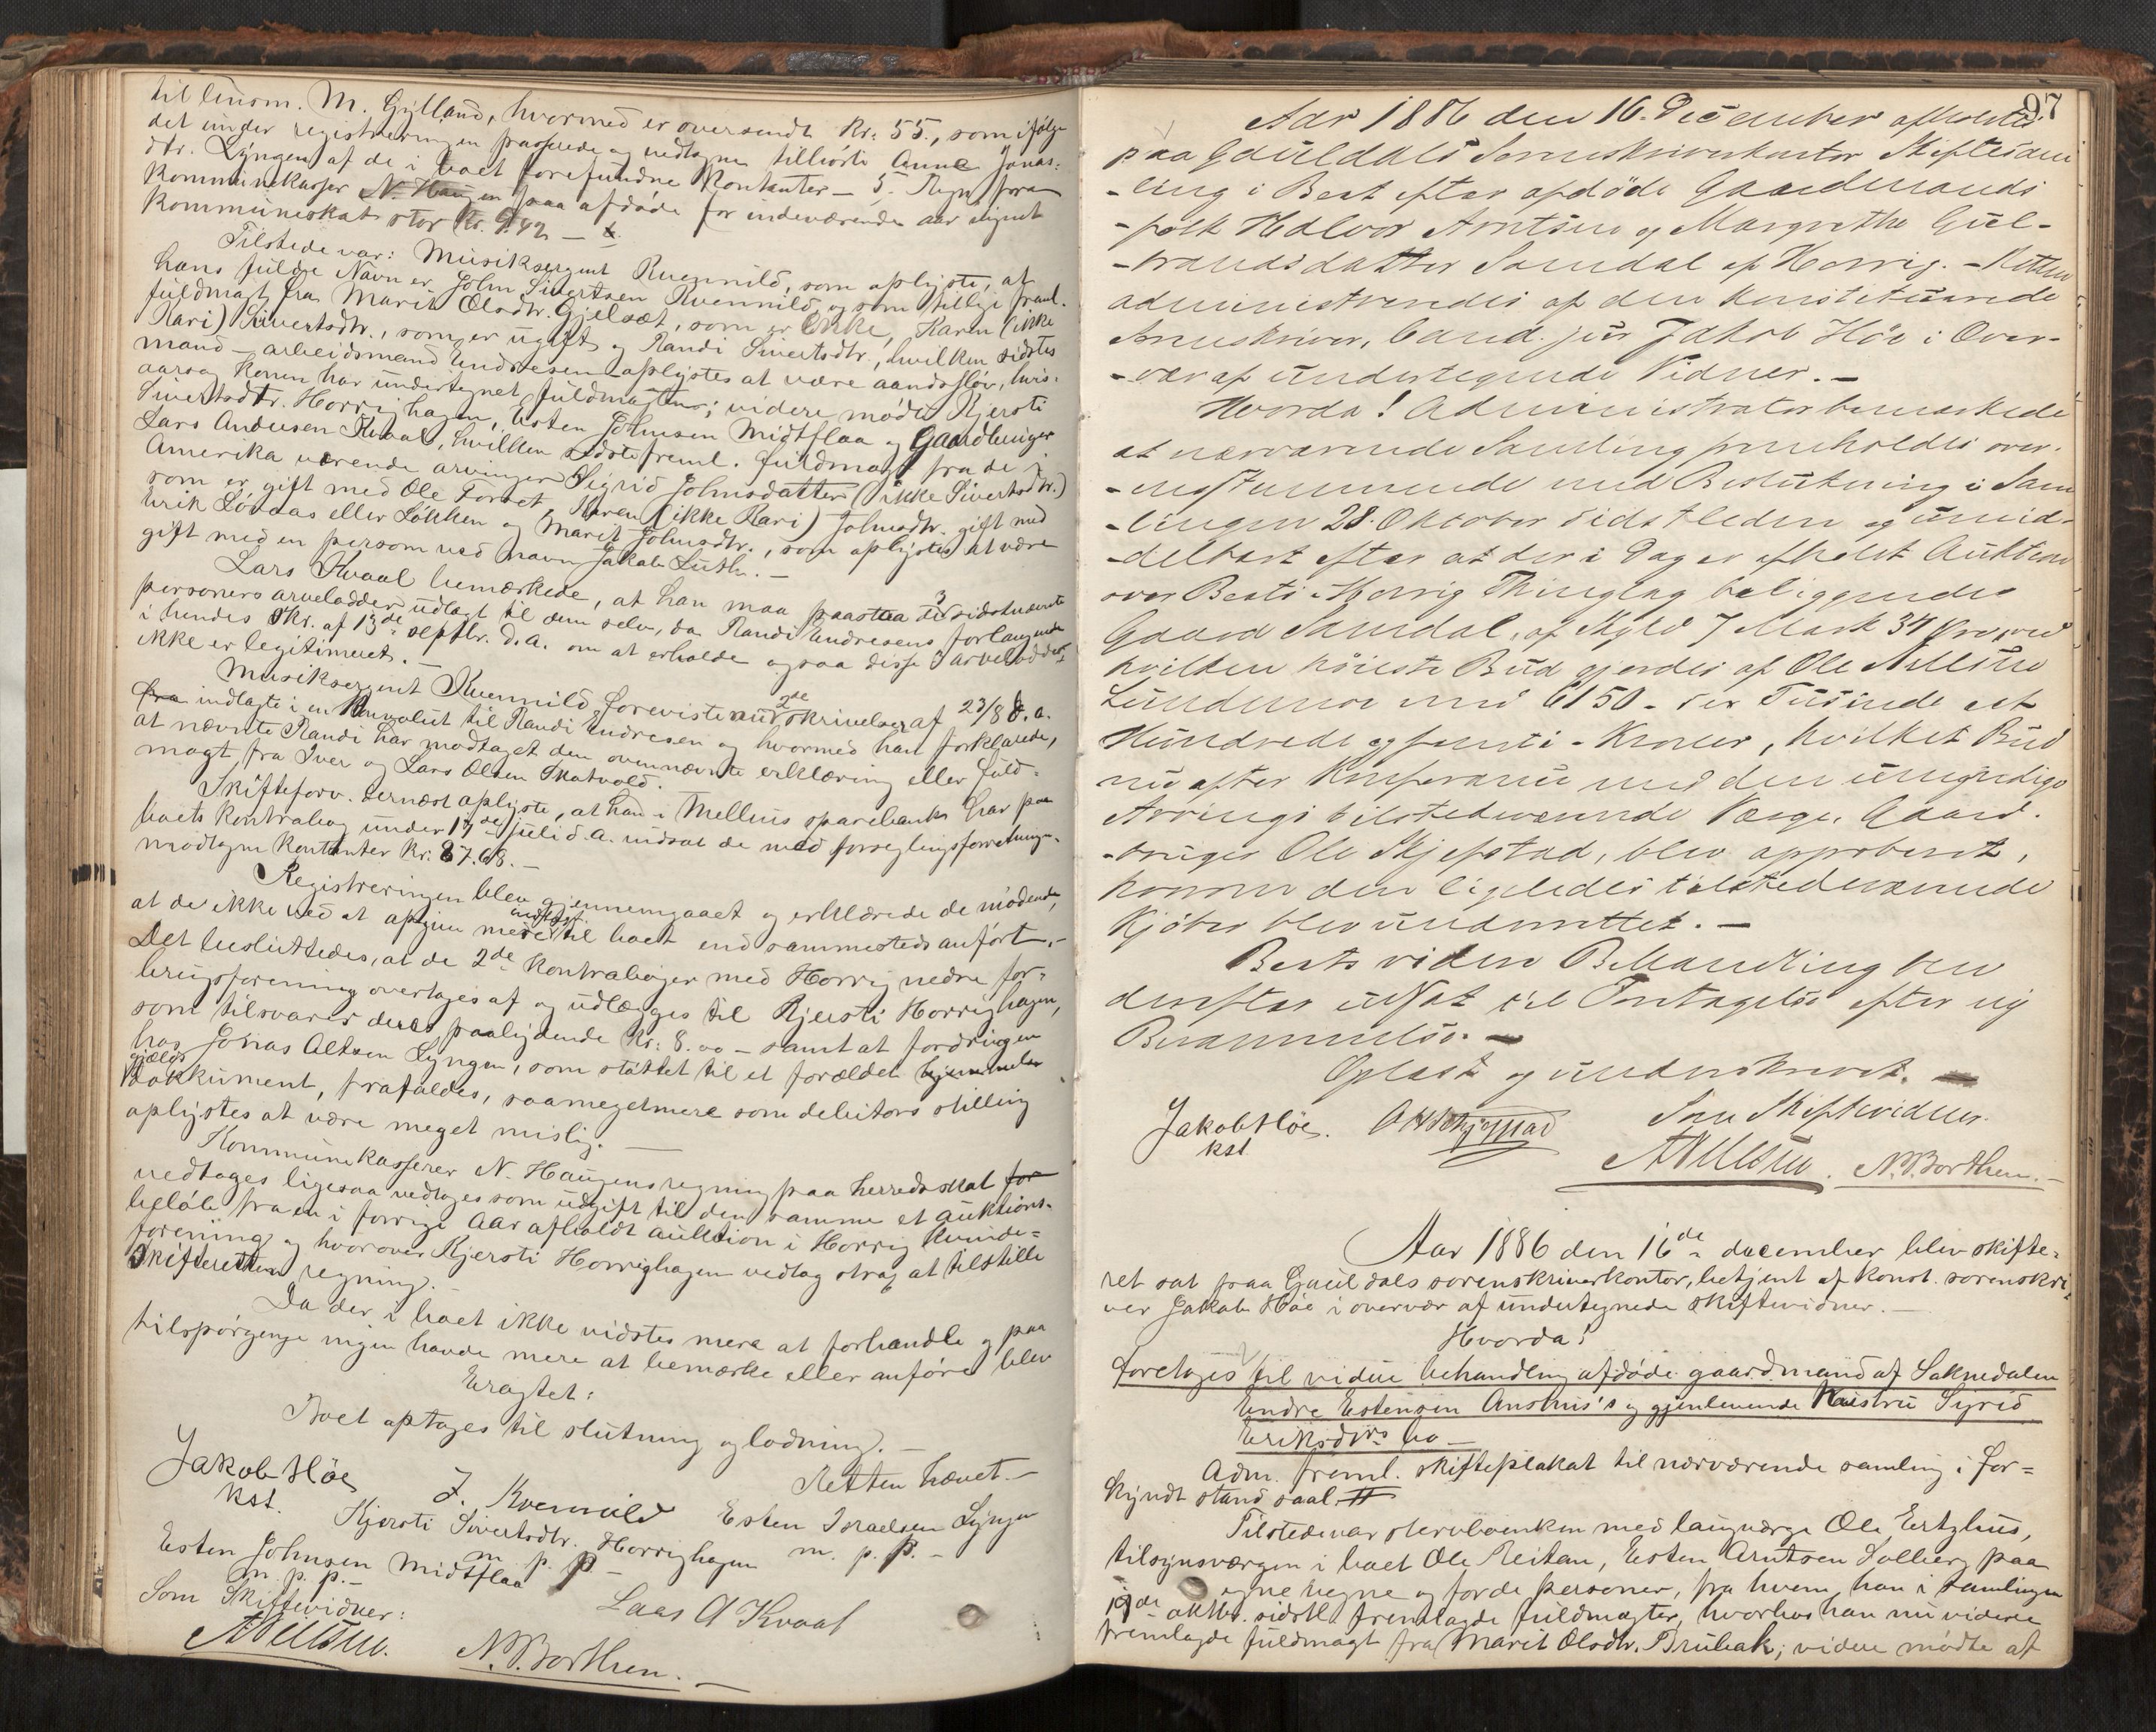 til lensm. M. Gylland, hvormed er oversendt Kr: 55., som ifølge
det under registreringen passerede og vedtagne tilhörte Anne Jonas-
dtr. Lyngen af de i boet forefundne Kontanter – 5. Regn. fra
Kommunekasser N. Haugen paa afdöde for indeværende aar lignet
Kommuneskat stor Kr. 9.42 –
Tilstede var: Musiksergent Kvenild, som oplyste, at
hans fulde Navn er John Sivertsen Kvennild og som tillige freml.
fuldmagt fra Marit Olsdtr. Gjelsæt, som er Enke, Karen (ikke
Kari) Sivertsdtr., som er ugift og Randi Sivertsdtr., hvilken sidstes
mand – arbeidsmand Endresen oplystes at være aandssløv, hvis-
aarsag konen har undertegnet fuldmagten; videre mödte Kjersti
Sivertsdtr. Horrighagen, Esten Johnsen Midtflaa og Gaardbruger
Lars Andersen Kvaal, hvilken sidste freml. fuldmagt fra de i
Amerika værende arvinger Sigrid Johnsdatter (ikke Sivertsdtr.)
som er gift med Ole Forset, Karen (ikke Kari) Johnsdtr. gift med
Erik Lövaas eller Løkken og Marit Johnsdtr., som oplystes at være
gift med en person ved navn Jakob Luth. –
Lars Kvaal bemærkede, at han maa paastaa de 3 sidstnævnte
personers arvelodder udlagt til dem selv, da Randi Endresens forlangende
i hendes Skr. af 13de septbr. d. a. om at erholde ogsaa disse 3 arvelodder
ikke er legitimeret. –
Musiksergent Kvennild foreviste 2de skrivelser af 23/8 d. a.
fra indlagte i en Konvolut til Randi Endresen og hvormed han forklarede,
at nævnte Randi har modtaget den ovennævnte erklæring eller fuld-
magt fra Iver og Lars Olsen Skatvold.
Skifteforv. dernæst oplyste, at han i Melhus sparebank har paa
boets Kontrabog under 17de juli d. a. indsat de med forseglingsforretningen
modtagne Kontanter Kr. 87.68. –
Registreringen blev gjennemgaaet og erklærede de mödende,
at de ikke ved at opgive mere indtægt til boet end sammesteds anført. –
Det besluttedes, at de 2de Kontraböger med Horrig nedre for-
brugsforening overtages af og udlægges til Kjersti Horrighagen,
som tilsvarer deres paalydende Kr: 8.00 – samt at fordringen
hos Jonas Altsen Lyngen, som stöttet til et forældet
gjelds dokument, frafaldes, saameget mere som debitors stilling
oplystes at være meget mislig. –
Kommunekasserer N. Haugens regning paa herredsskat for
vedtages ligesaa vedtages som udgift til den samme et auktions-
belöb fra en i forrige Aar afholdt auktion i Horrig Kvinde-
forening og hvorover Kjersti Horrighagen vedtog strax at tilstille
Skifteretten regning.
Da der i boet ikke vidstes mere at forhandle og paa
tilspörgende ingen havde mere at bemærke eller anføre blev
Eragtet:
Boet optages til slutning og lodning. –
Retten hævet. –
Jakob Höe
kst.
J. Kvennild Esten Israelsen Lyngen
m. p. p. –
Kjersti Sivertsdtr. Horrighagen
m. p. p. –
Esten Johnsen Midtflaa
m. p. p. –
Lars A Kvaal
Som Skiftevidner:
N. P. Borthen. –
97
Aar 1886 den 16. December afholdtes
paa Gauldals Sorenskriverkontor Skiftesam
-ling i Boet efter afdöde Gaardmands
-folk Halvor Arntsen og Margrethe Gul-
-brandsdatter Samdal af Horrig. – Retten
administreredes af den Konstituerede
Sorenskriver, Cand. jur Jakob Höe i Over-
-vær af undertegnede Vidner. –
Hvorda! Administrator bemærkede
at nærværende Samling foreholdes over-
-ensstemmende med Beslutning i Sam
-lingen 28. Oktober sidstleden og umid-
-delbart efter at der i Dag er afholdt Auktion
over Boets i Horrig Thinglag beliggende
Gaard Samdal, af Skyld 7 Mark 34 Öre, ved
hvilken höieste Bud gjordes af Ole Nilsen
Lundemoe med 6150 – sex Tusinde et
Hundrede og femti – Kroner, hvilket Bud
nu efter Konference med den umyndige
Arvings tilstedeværende Værge, Gaard-
-bruger Ole Skjefstad, blev approberet,
hvorom den ligeledes tilstedeværende
Kjöber blev underrettet. –
Boets videre Behandling blev
derefter udsat til Foretagelse efter ny
Berammelse. –
Oplæst og underskrevet. –
Jakob Höe.
kst
Som Skiftevidner.
N. P. Borthen. –
Aar 1886 den 16de december blev skifte-
ret sat paa Gauldals sorenskriverkontor, betjent af konst. sorenskri-
ver Jakob Höe i overvær af undertegnede skiftevidner. –
Hvorda!
foretoges til videre behandling afdöde gaardmand af Soknedalen
Endre Estensen Anshus's og gjenlevende Kaistru Sigrid
Eriksdtrs bo –
Adm. freml. skifteplakat til nærværende samling i for-
kyndt stand saal.
Tilstede var stervboenken med laugværge Ole Ertzhus,
tilsynsværgen i boet Ole Reitan, Esten Arntsen Solberg paa
egne vegne og for de personer, fra hvem han i samlingen
19de oktbr. sidstl. fremlagde fuldmagter, hvorhos han nu videre
fremlagde fuldmagt fra Marit Olsdtr. Brubak; videre mødte at